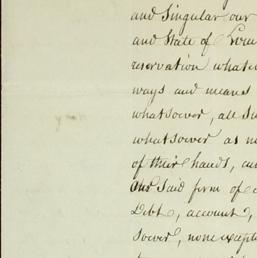 and Singular our
and State of
reservation
ways and means
whatsoever, all
whatsoever as
of their hands,
Our Said firm of
Debt, account,
soever, none